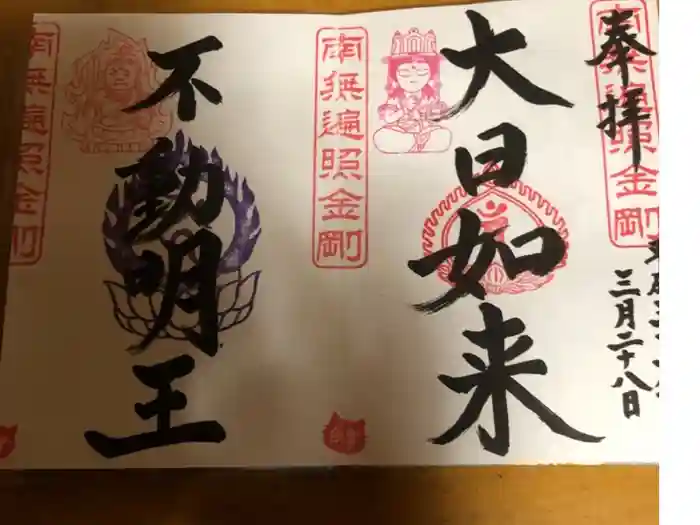 奉拝
南無遍照金剛
三月二十八日
大日如来
南無遍照金剛
不動明王
南無遍照金剛